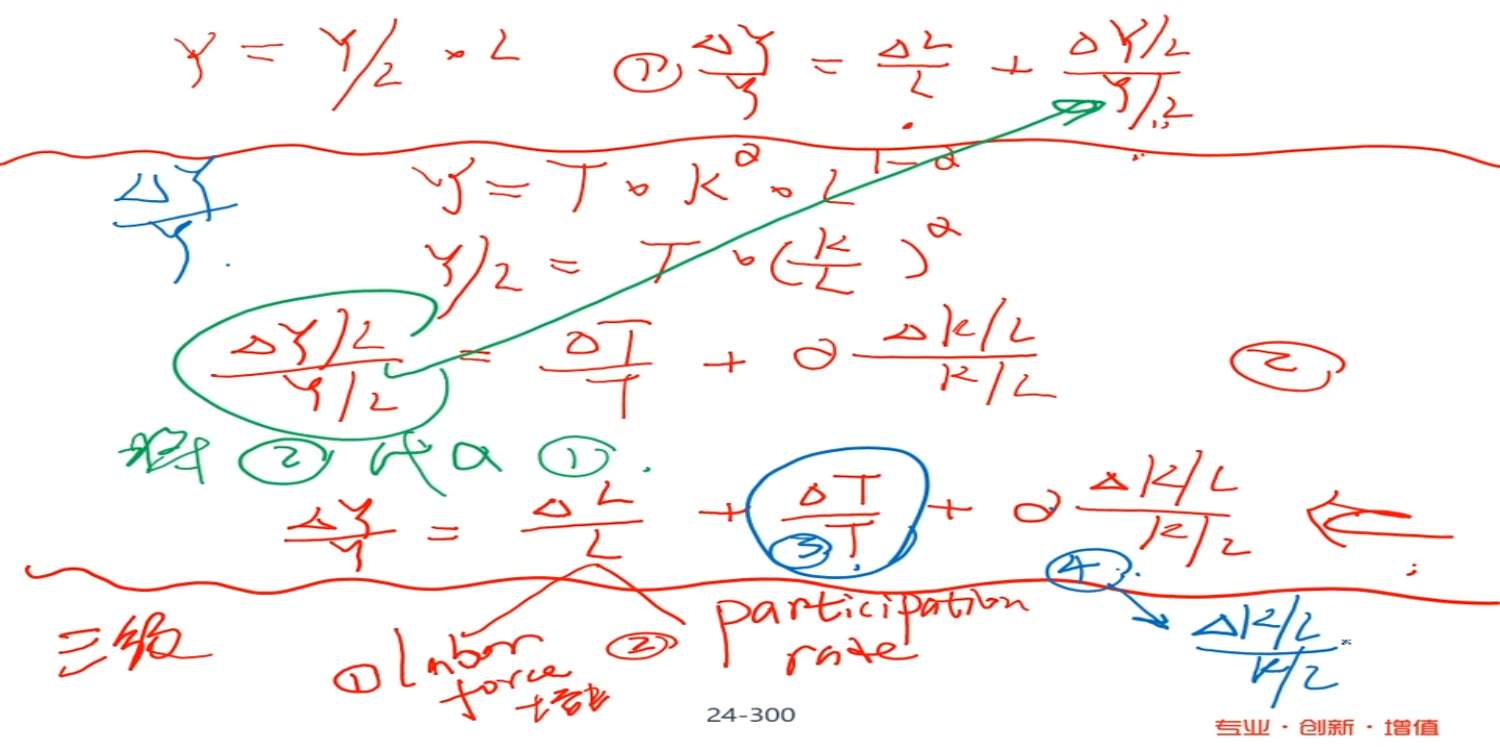 Y = Y/L · L ① ΔY/Y = ΔL/L + ΔY/L / Y/L
ΔY/Y Y = T · K^α · L^(1-α)
Y/L = T · (K/L)^α
ΔY/L / Y/L = ΔT/T + α ΔK/L / K/L ②
将 ② 代入 ① .
ΔY/Y = ΔL/L + ΔT/T + α ΔK/L / K/L
③ ④
三级 ① labor force 增 ② participation rate ΔK/L / K/L
24-300
专业·创新·增值